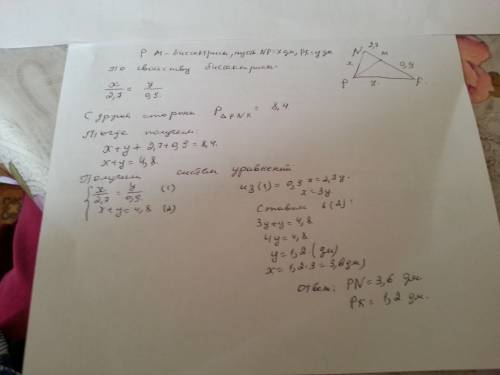 PM - биссектриса, пусть NP = x дм, PK = y дм
По свойству биссектрисы:
x/2,7 = y/0,9.
С другой стороны P△PNK = 8,4
Тогда получаем:
x+y+2,7+0,9=8,4.
x+y=4,8.
Получим систему уравнений
{ x/2,7 = y/0,9. (1)
x+y=4,8 (2)
N 2,7 M
x 0,9
P y K
из (1) = 0,9 x = 2,7 y.
x=3y
Ставим в (2):
3y+y=4,8
4y=4,8
y=1,2 (дм)
x=1,2·3=3,6(дм)
Ответ: PN=3,6 дм
PK=1,2 дм.